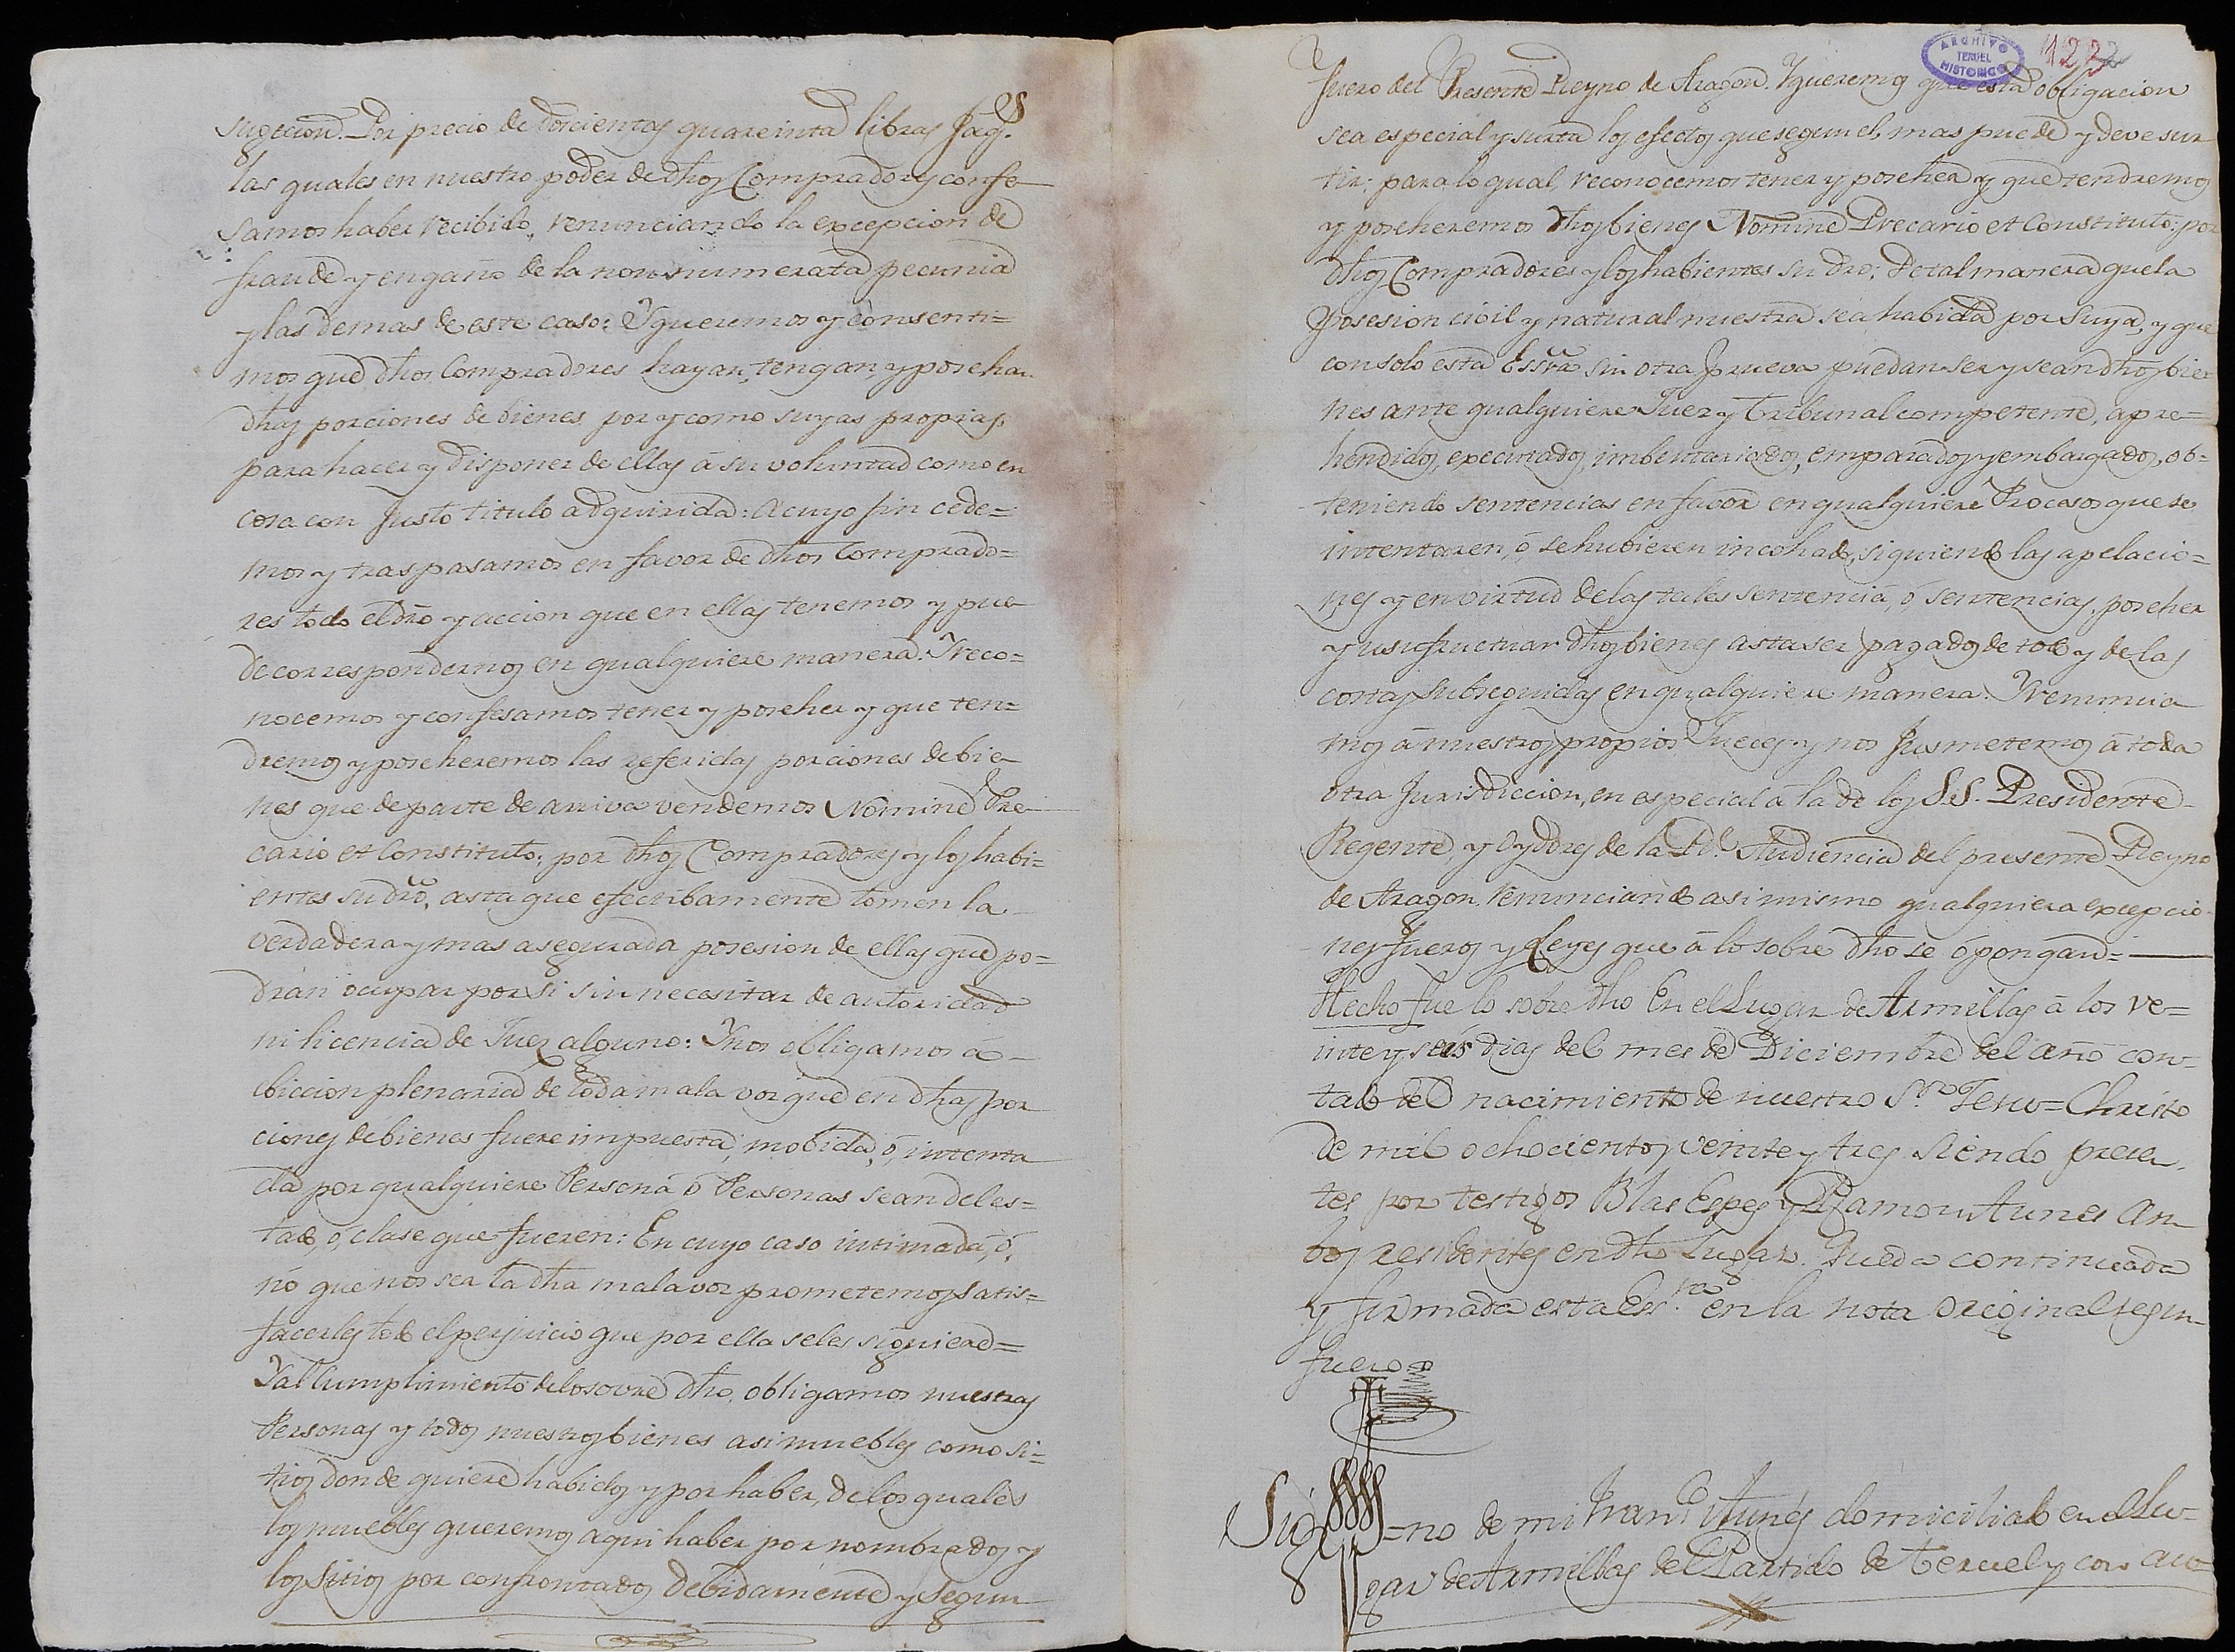 sugecion. Por precio de doscientas quareinta libras Jaq.s
las quales en nuestro poder de dhos Compradores confe-
samos haber recibido, renunciando la excepcion de
fraude y engaño de la non numerata pecunia
y las demas de este caso: Y queremos y consenti=
mos que dhos Compradores hayan, tengan, y posehan
dhas porciones de bienes por y como suyas propias,
para hacer y disponer de ellas á su voluntad como en
cosa con justo titulo adquirida: A cuyo fin cede=
mos y traspasamos en favor de dhos Comprado=
res todo el dro y accion que en ellas tenemos y pue-
de correspondernos en qualquiere manera. Y reco=
nocemos y confesamos tener y poseher y que ten=
dremos y poseheremos las referidas porciones de bie-
nes que de parte de arriva vendemos Nomine Pre-
cario et Constituto; por dhos Compradores y los habi=
entes su dro, asta que efectibamente tomen la
verdadera y mas asegurada posesion de ellas que po=
dran ocupar por si sin necesitar de autoridad
ni licencia de Juez alguno: Y nos obligamos á
biccion plenaria de toda mala voz que en dhas por
ciones de bienes fuere impuesta, mobida, ó, intenta
da por qualquiere Persona ó Personas sean del es=
tado, ó, clase que fueren: En cuyo caso intimada, ó,
nó que nos sea la dha mala voz prometemos satis=
facerles todo el perjuicio que por ella se les siguiera=
Y al Cumplimiento de lo sovre dho, obligamos nuestras
Personas y todos nuestros bienes asi muebles como si=
tios donde quiere habidos y por haber, de los quales
los muebles queremos aqui haber por nombrados y
los sitios por confrontados debidamente y segun
ARCHIVO HISTORICO TERUEL
122
fuero del Presente Reyno de Aragon. Y queremos que esta obligacion
sea especial y surta los efectos que segun el, mas puede y deve sur
tir; para lo qual, reconocemos tener y poseher y que tendremos
y poseheremos dhos bienes Nomine Precario et Constituto: por
dhos Compradores y los habientes su dro; De tal manera que la
Posesion civil y natural nuestra sea habida por suya, y que
con solo esta Essra sin otra prueva puedan ser y sean dhos bie-
nes ante qualquiere Juez y Tribunal competente, apre=
hendidos, executados, imbentariados, emparados y embargados, ob=
teniendo sentencias en favor en qualquiere Procesos que se
intentaren, ó se hubieren incohado, siguiendo las apelacio=
nes y en virtud de las tales sentencia, ó sentencias, poseher
y usufructuar dhos bienes asta ser pagados de todo y de las
costas subseguidas en qualquiere manera. Y renuncia
mos á nuestros propios Jueces y nos jusmetemos á toda
otra Jurisdiccion, en especial á la de los S.S. Presidente
Regente, y Oydores de la Rl. Audiencia del presente Reyno
de Aragon, renunciando asi mismo qualquiera excepcio-
nes fueros y Leyes que á lo sobre dho se opongan=
Hecho fue lo sobre dho En el Lugar de Armillas á los ve=
inte y seis dias del mes de Diciembre del año con-
tado del nacimiento de nuestro S.or Jesu=Christo
de mil ochocientos veinte y tres siendo presen-
tes por testigos Blas Espes y Ramon Aunes am
bos residentes en dho Lugar. Queda continuada
y firmada esta Es.ra en la nota original segun
fuero=
Sig=no de mi Fran.co Aunés domiciliado en el Lu=
gar de Armillas del Partido de Teruel y con au-